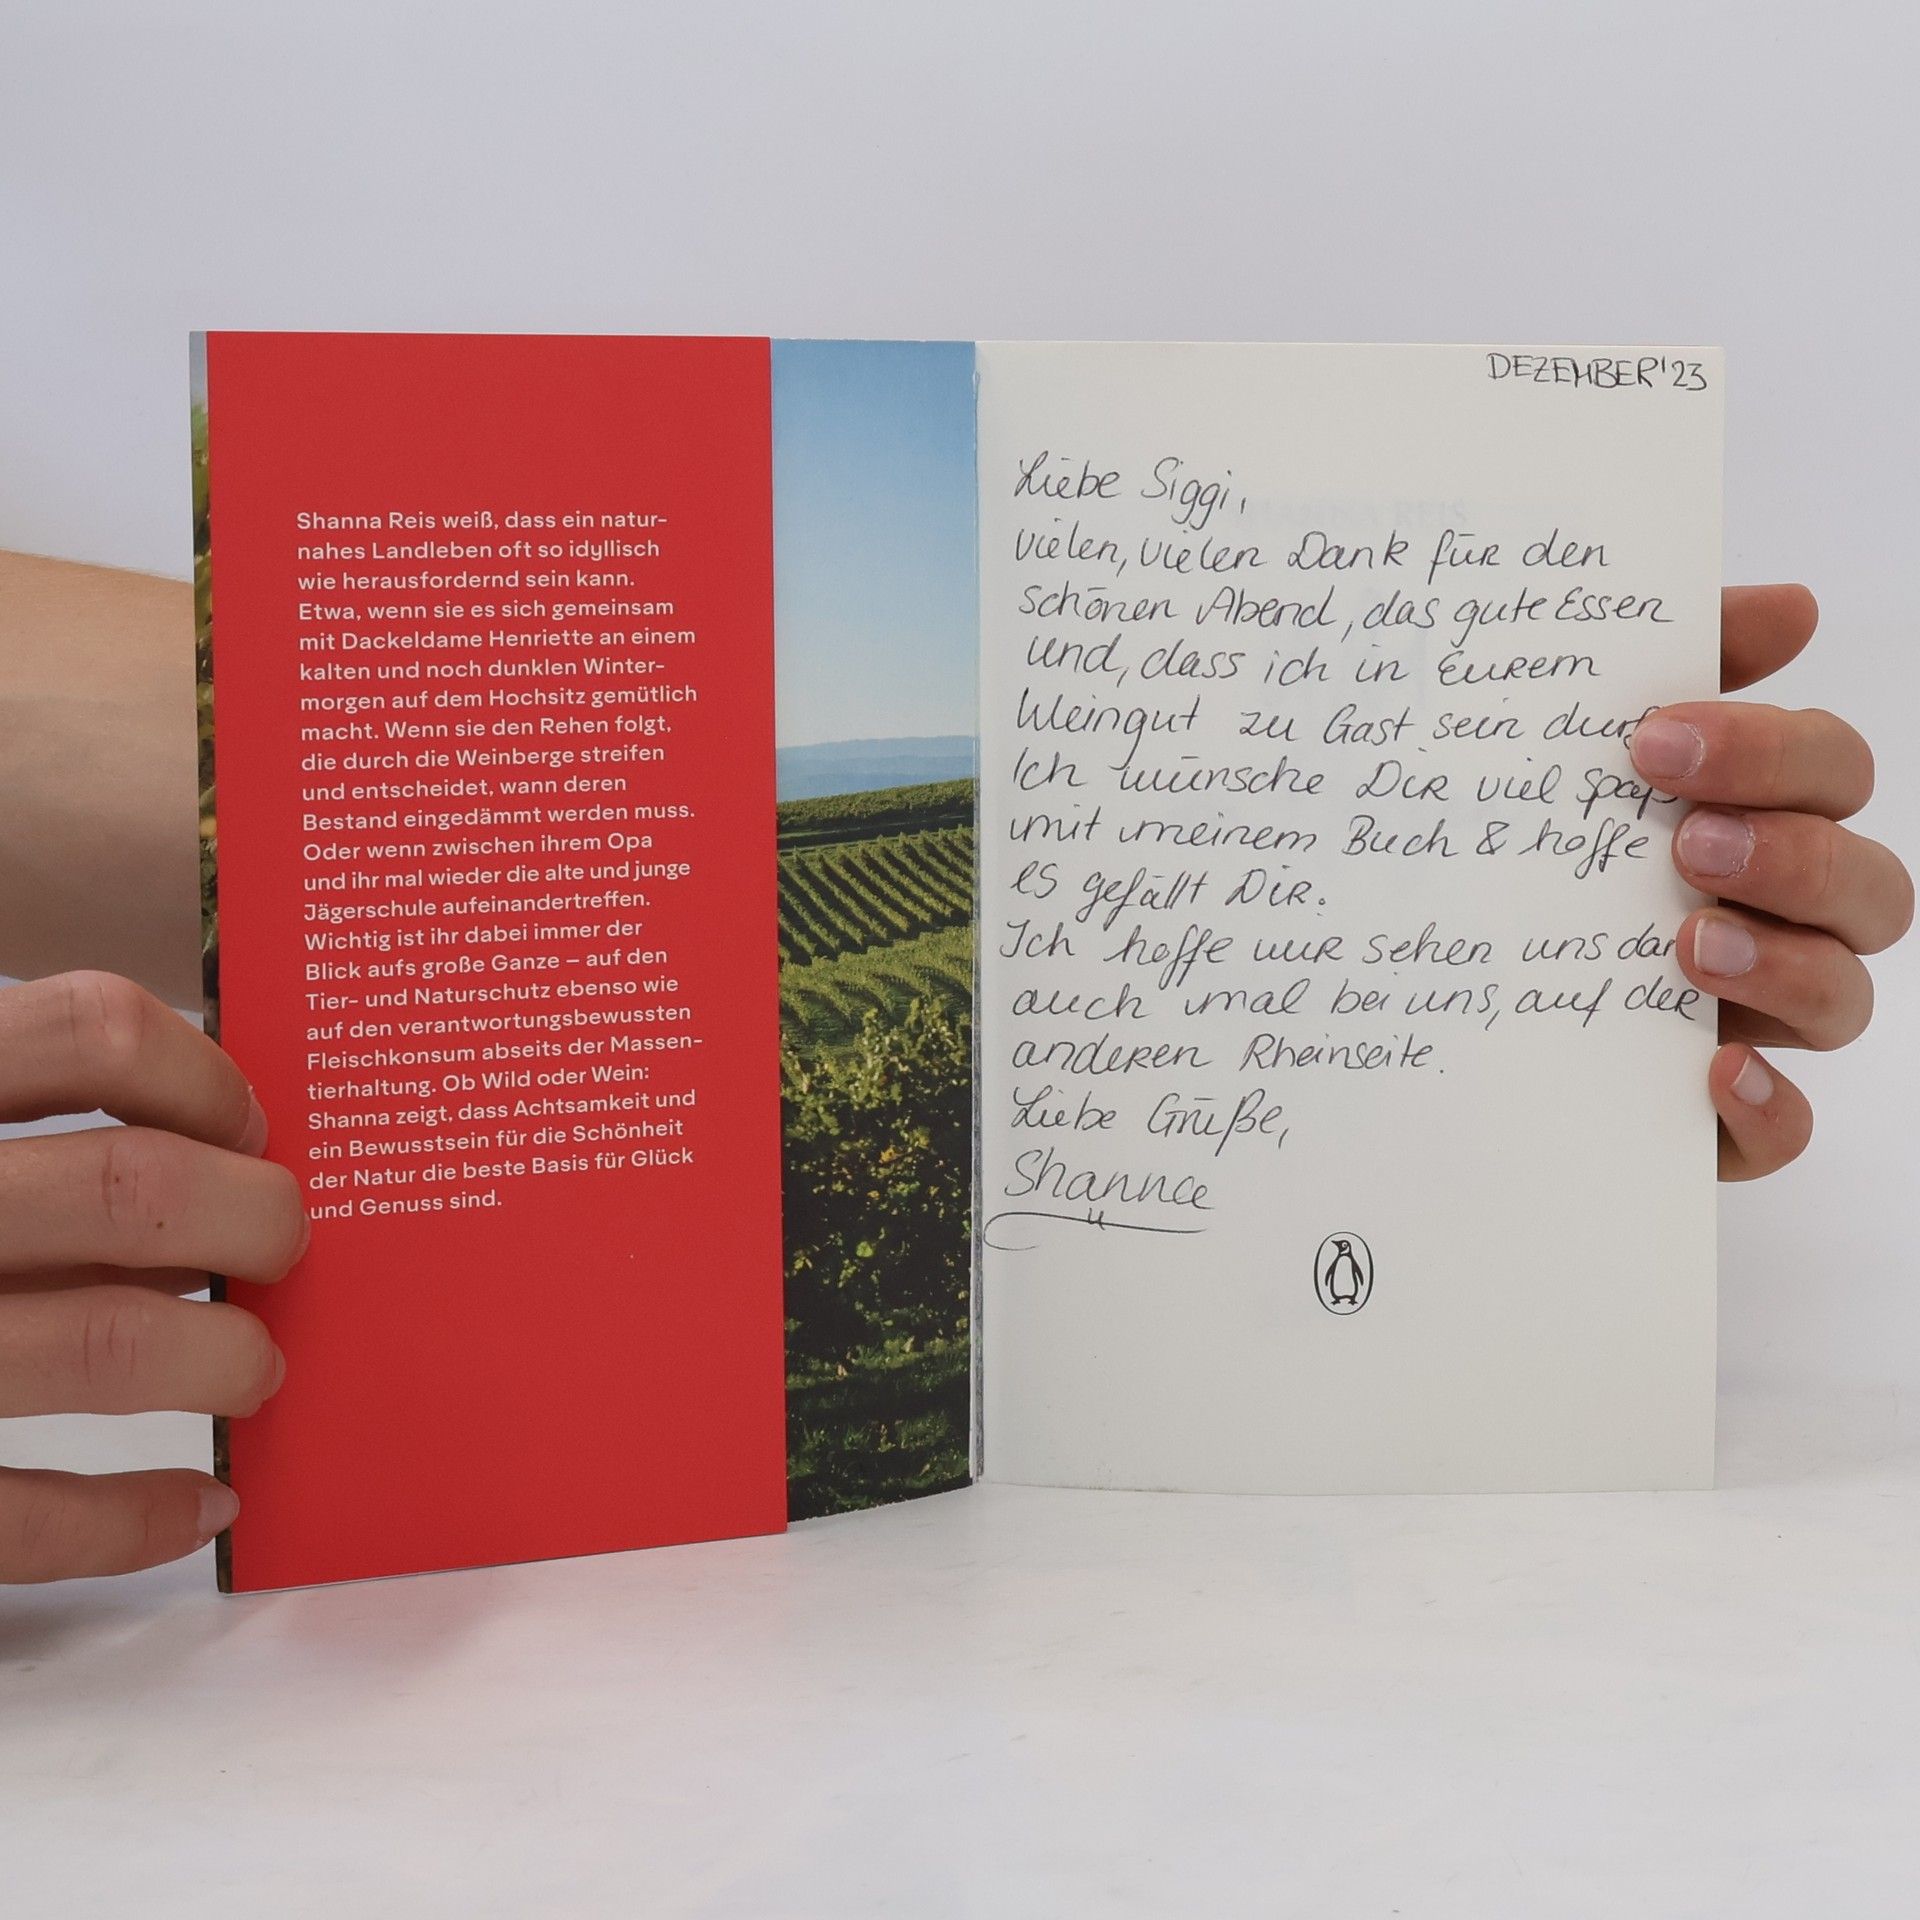 Shanna Reis weiß, dass ein natur-
nahes Landleben oft so idyllisch
wie herausfordernd sein kann.
Etwa, wenn sie es sich gemeinsam
mit Dackeldame Henriette an einem
kalten und noch dunklen Winter-
morgen auf dem Hochsitz gemütlich
macht. Wenn sie den Rehen folgt,
die durch die Weinberge streifen
und entscheidet, wann deren
Bestand eingedämmt werden muss.
Oder wenn zwischen ihrem Opa
und ihr mal wieder die alte und junge
Jägerschule aufeinandertreffen.
Wichtig ist ihr dabei immer der
Blick aufs große Ganze – auf den
Tier- und Naturschutz ebenso wie
auf den verantwortungsbewussten
Fleischkonsum abseits der Massen-
tierhaltung. Ob Wild oder Wein:
Shanna zeigt, dass Achtsamkeit und
ein Bewusstsein für die Schönheit
der Natur die beste Basis für Glück
und Genuss sind.
DEZEMBER'23
Liebe Siggi,
vielen, vielen Dank für den
schönen Abend, das gute Essen
und, dass ich in Eurem
Weingut zu Gast sein
Ich wünsche Dir viel Spaß
mit meinem Buch & hoffe
es gefällt Dir.
Ich hoffe wir sehen uns
auch mal bei uns, auf der
anderen Rheinseite.
Liebe Grüße,
Shanna